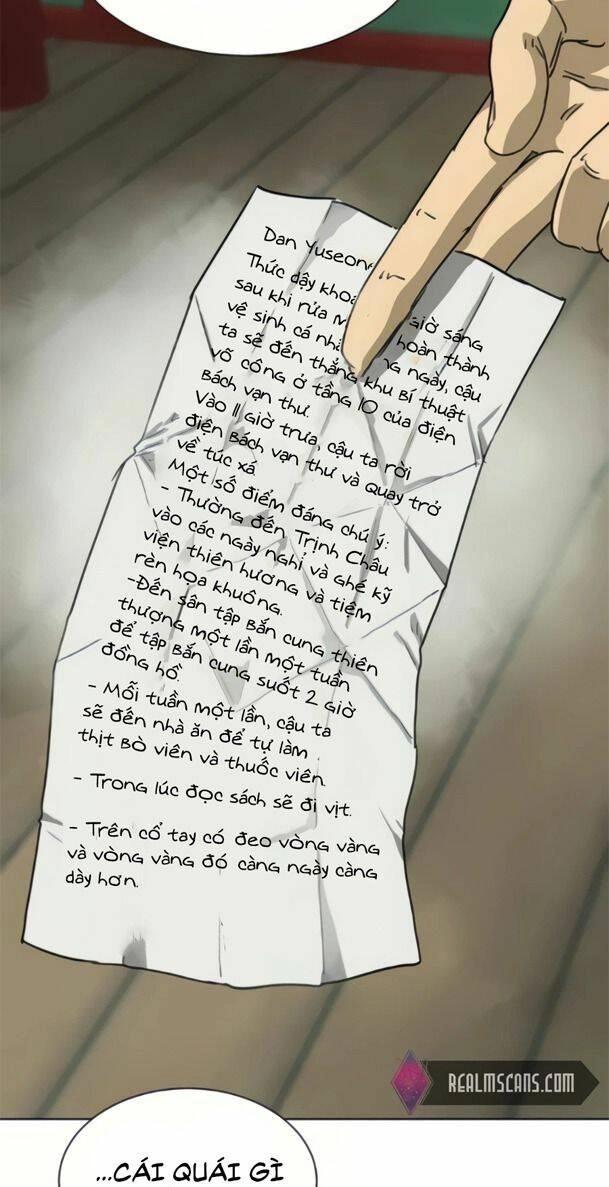 Dan Yuseong
Thức dậy giờ sáng
sau khi rửa hoàn thành
vệ sinh cá ngày, cậu
ta sẽ đến thẳng khu bí thuật
võ công ở tầng 10 của điện
Bách vạn thư.
Vào 11 giờ trưa, cậu ta rời
điện Bách vạn thư và quay trở
về túc xá
Một số điểm đáng chú ý:
- Thường đến Trịnh Châu
vào các ngày nghỉ và ghé kỹ
viện thiên hương và tiệm
rèn họa khuông.
-Đến sân tập bắn cung thiên
thượng một lần một tuần
để tập bắn cung suốt 2 giờ
đồng hồ.
- Mỗi tuần một lần, cậu ta
sẽ đến nhà ăn để tự làm
thịt bò viên và thuốc viên.
- Trong lúc đọc sách sẽ đi vịt.
- Trên cổ tay có đeo vòng vàng
và vòng vàng đó càng ngày càng
dày hơn.
REALMSCANS.COM
...CÁI QUÁI GÌ